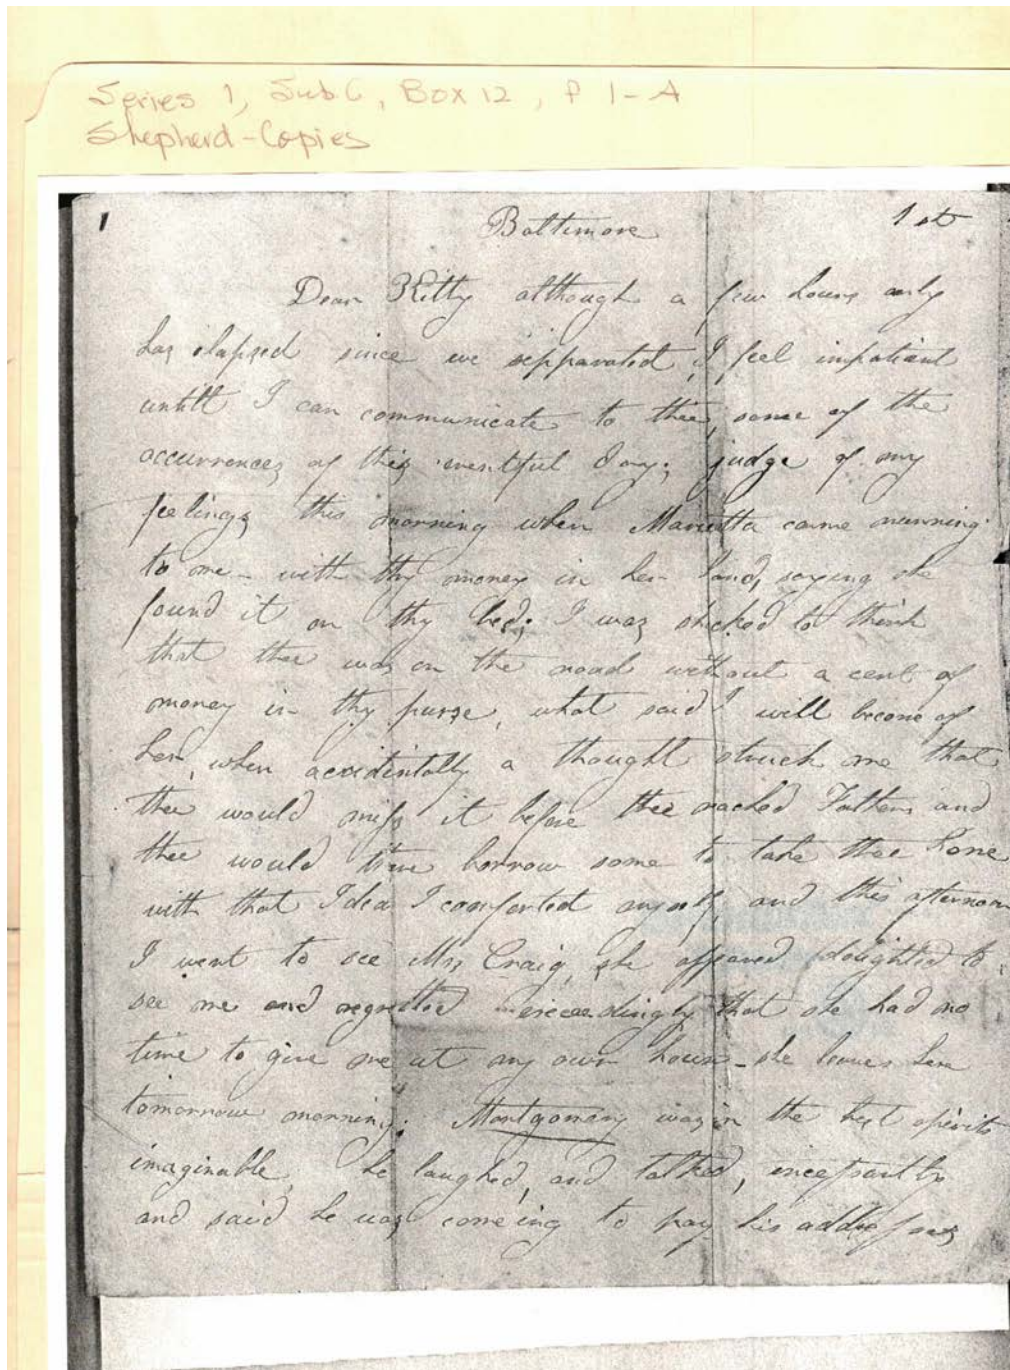 Series 1, Sub C, Box 12, P 1-A
Shepherd-Copies
1 Baltimore 1st
Dear Kitty although a few hours only
has elapsed since we sepparated, I feel impatient
untill I can communicate to thee, some of the
occurrences of this eventful day; judge of my
feelings this morning when Marietta came running
to me - with thy money in her hand, saying she
found it on thy bed; I was shocked to think
that thee was on the road without a cent of
money in thy purse, what said I will become of
her, when accidintally a thought struck me that
thee would miss it before thee reached Fathers and
thee would borrow some to take thee home
with that Idea I comforted myself, and this afternoon
I went to see Mrs Craig, she appeared delighted to
see me and regretted exceedingly that she had no
time to give me at my own house - she leaves here
tomorrow morning. Montgomery was in the best spirits
imaginable, he laughed, and talked, incessantly
and said he was comeing to pay his addresses